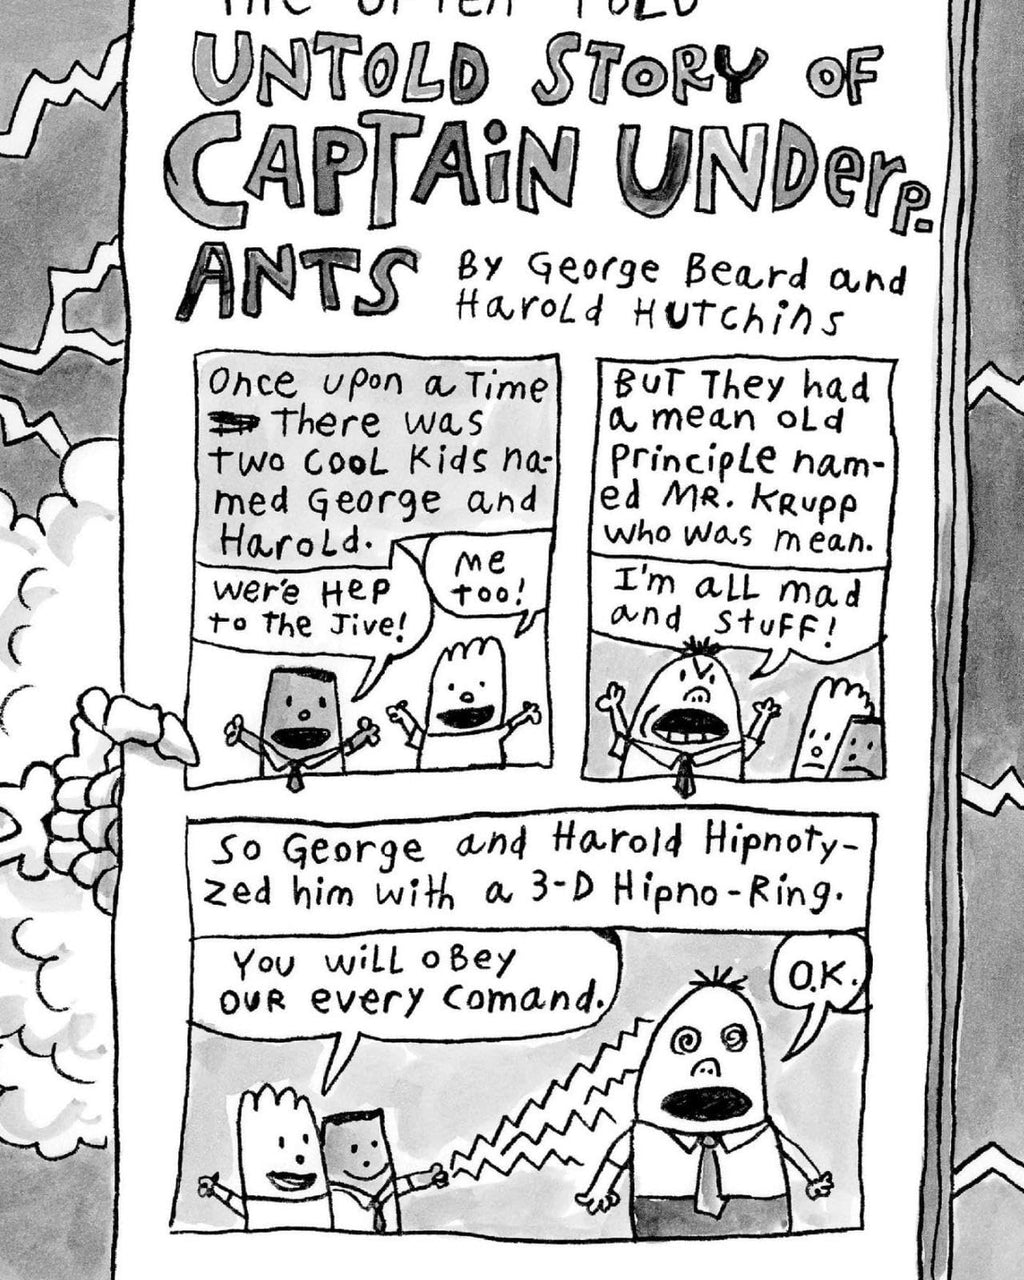 THE OFTEN TOLD
UNTOLD STORY OF
CAPTAiN UNDerp-
ANTS
By George Beard and
Harold Hutchins
Once upon a Time
There was
two cool Kids na-
med George and
Harold.
were'e Hep
to the Jive!
me
too!
But They had
a mean old
principle nam-
ed Mr. Krupp
who was mean.
I'm all mad
and stuff!
So George and Harold Hipnoty-
zed him with a 3-D Hipno-Ring.
You will obey
our every comand.
O.K.